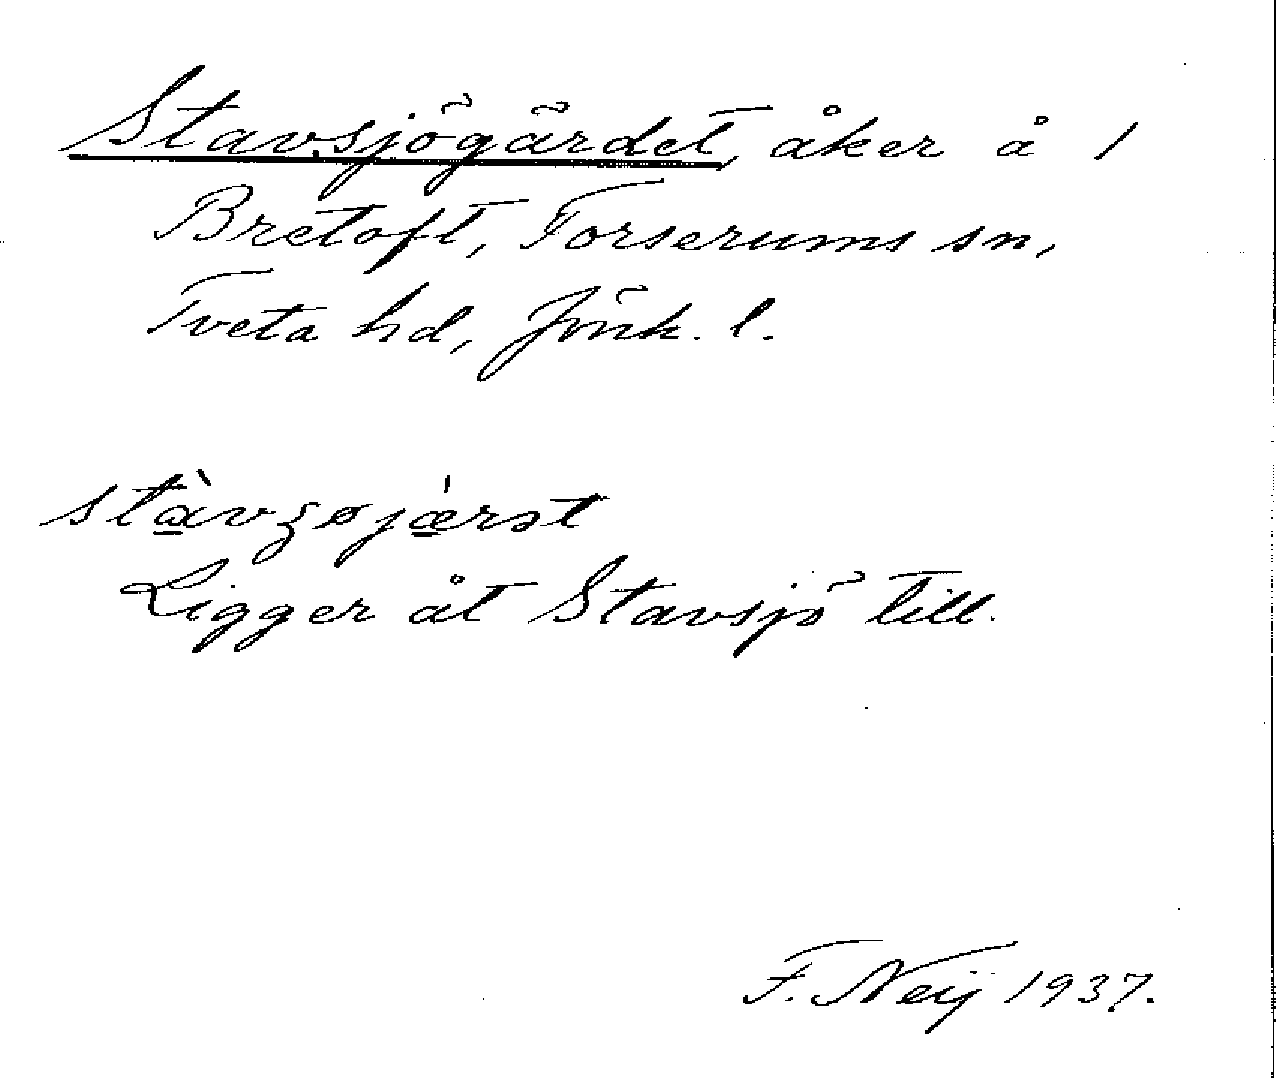 Stavsjögärdet, åker å 1
Bretoft, Forserums sn,
Tveta hd, Jönk. l.
stàvʒøjǽrət
Ligger åt Stavsjö till.
F. Neij 1937.